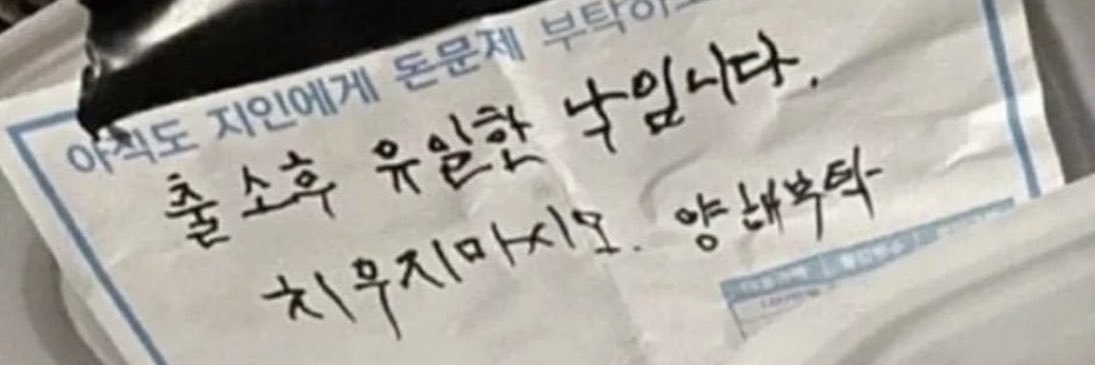 아직도 지인에게 돈문제 부탁하
출소후 유일한 낙입니다.
치우지마시오. 양해부탁